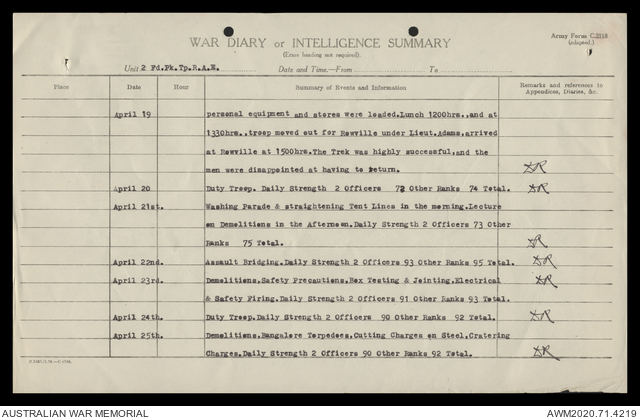 Army Form C.2118
(adapted.)
WAR DIARY or INTELLIGENCE SUMMARY
(Erase heading not required).
Unit 2 Fd.Pk.Tp.R.A.E. Date and Time.—From To
Place Date Hour Summary of Events and Information Remarks and references to Appendices, Diaries, &c.
April 19 personal equipment and stores were loaded.Lunch 1200hrs.,and at
1330hrs.,troop moved out for Rowville under Lieut.Adams,arrived
at Rowville at 1500hrs.The Trek was highly successful,and the
men were disappointed at having to return.
April 20 Duty Troop. Daily Strength 2 Officers 72 Other Ranks 74 Total.
April 21st. Washing Parade & straightening Tent Lines in the morning.Lecture
on Demolitions in the Afternoon.Daily Strength 2 Officers 73 Other
Ranks 75 Total.
April 22nd. Assault Bridging.Daily Strength 2 Officers 93 Other Ranks 95 Total.
April 23rd. Demolitions,Safety Precautions,Box Testing & Jointing,Electrical
& Safety Firing.Daily Strength 2 Officers 91 Other Ranks 93 Total.
April 24th. Duty Troop.Daily Strength 2 Officers 90 Other Ranks 92 Total.
April 25th. Demolitions,Bangalore Torpedoes,Cutting Charges on Steel,Cratering
Charges.Daily Strength 2 Officers 90 Other Ranks 92 Total.
AUSTRALIAN WAR MEMORIAL AWM2020.71.4219